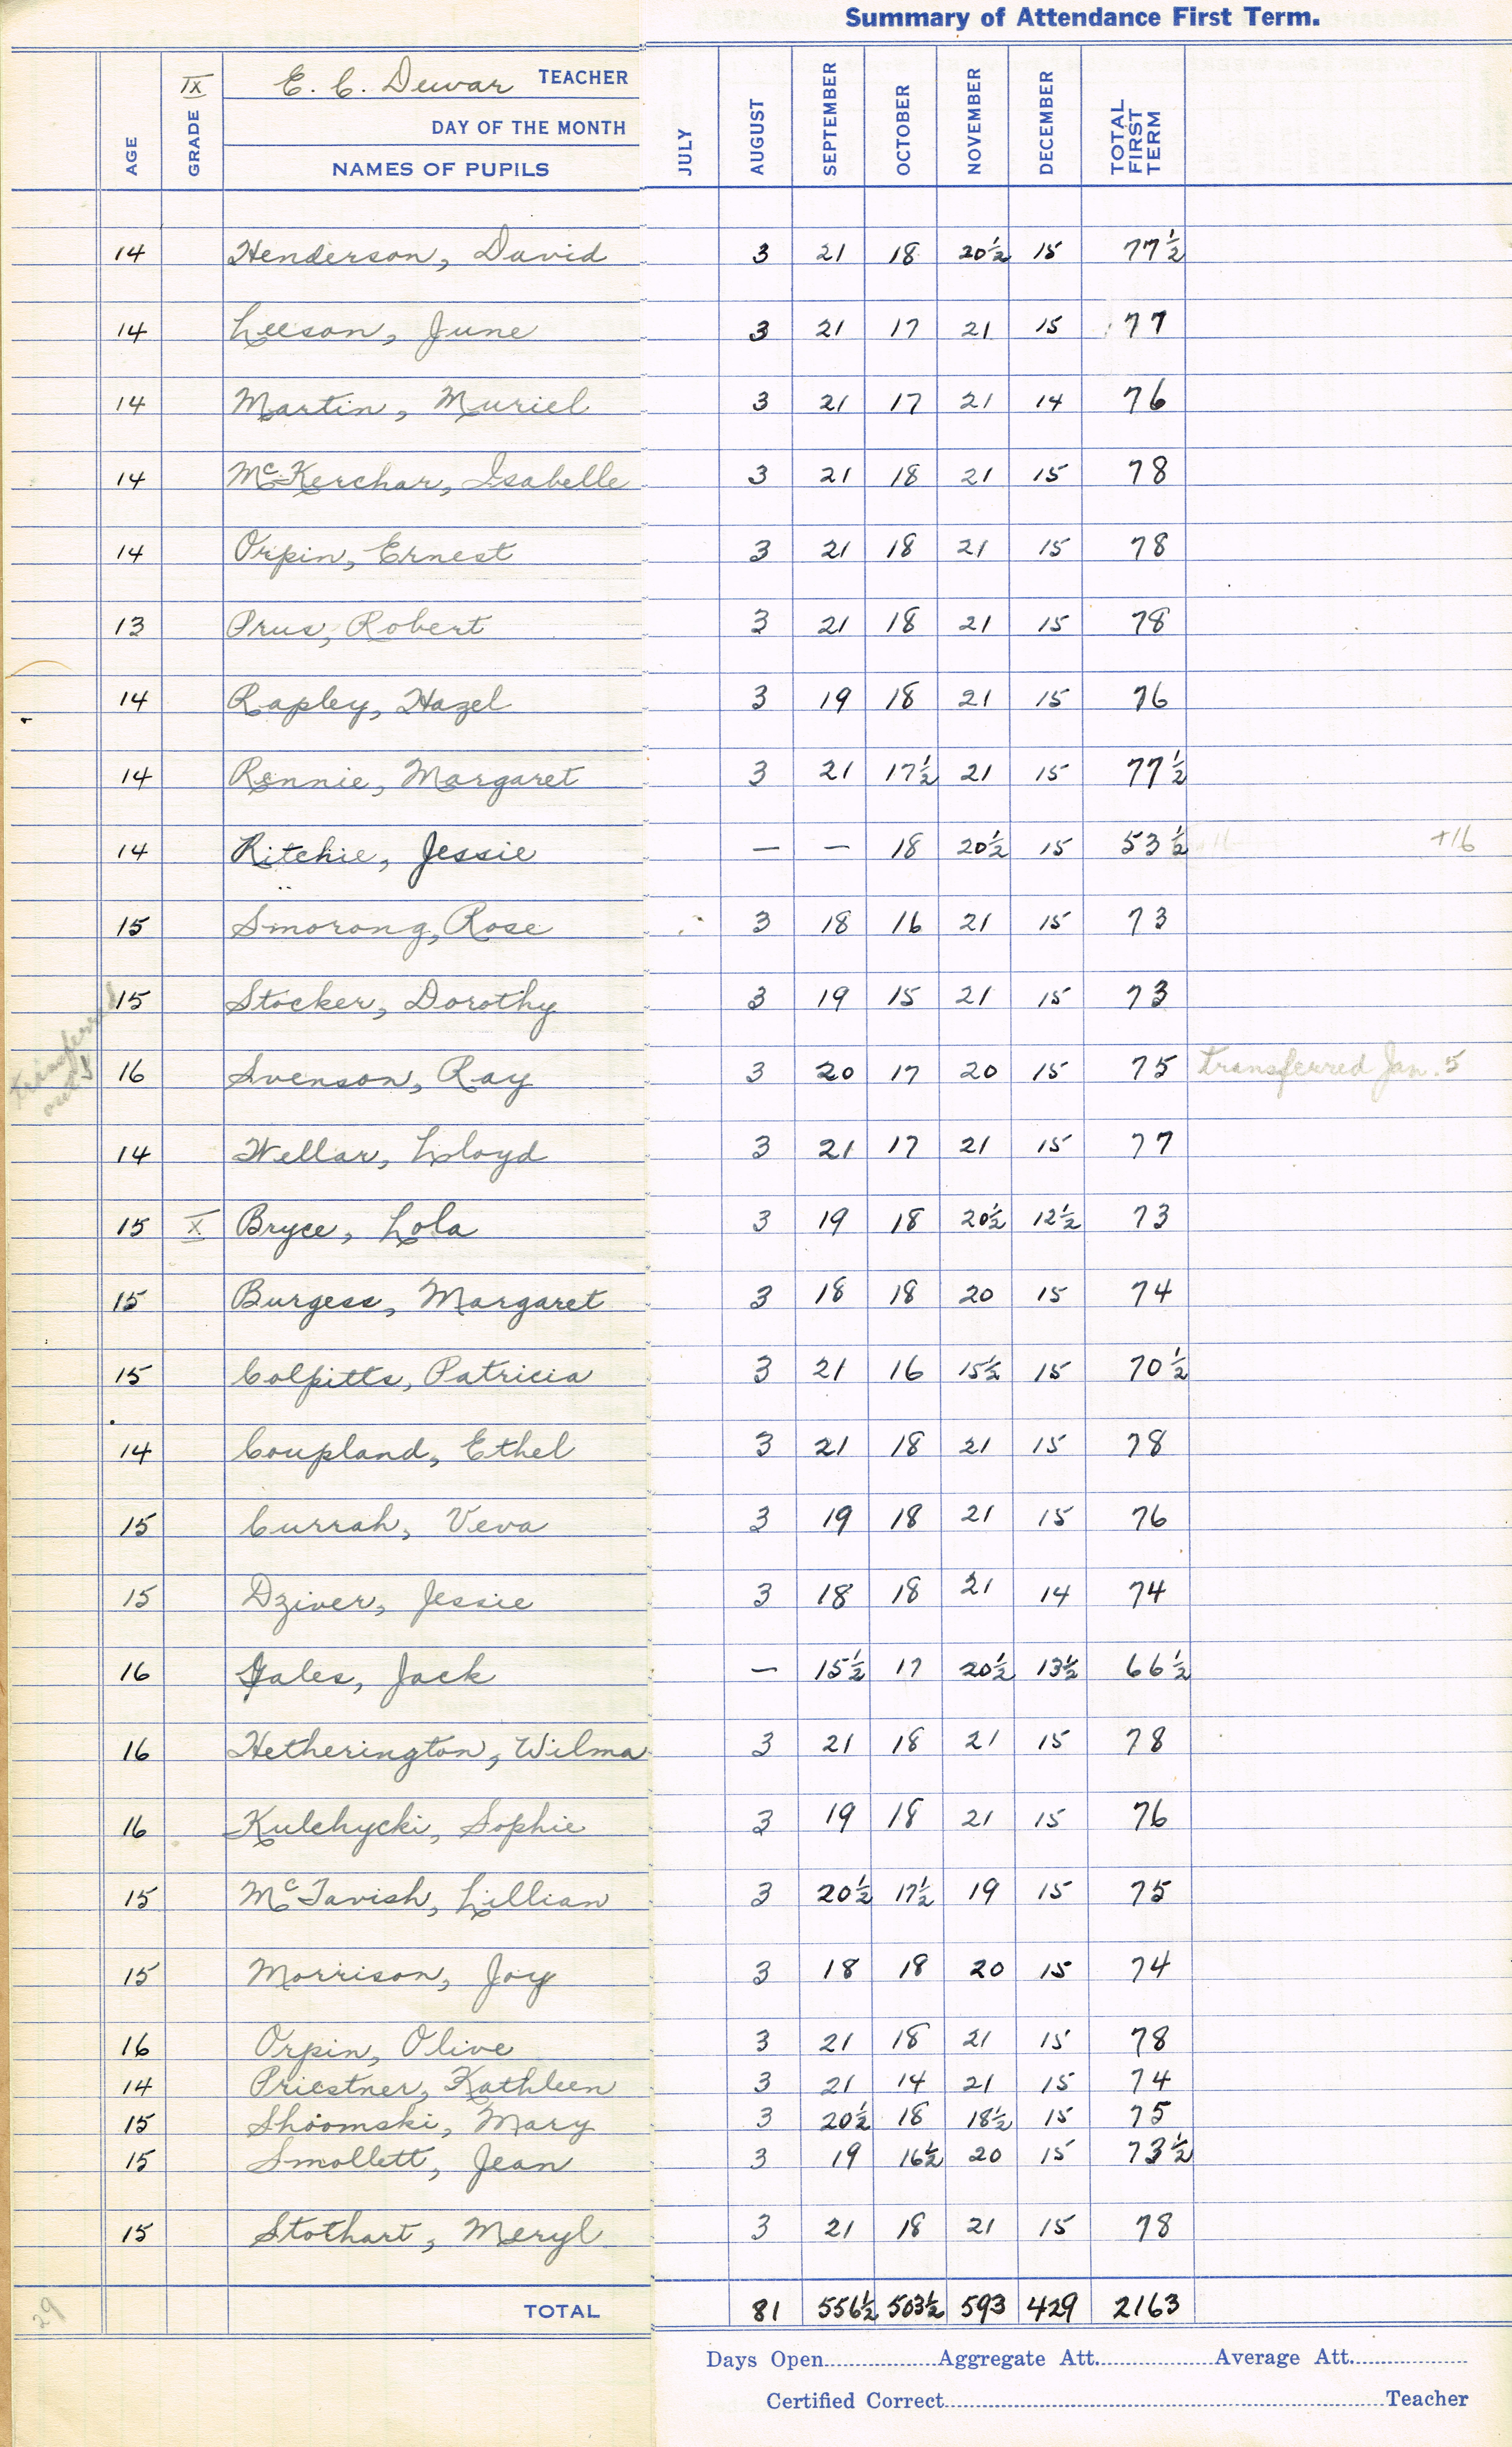 Summary of Attendance First Term.
AGE GRADE IX E. C. Dewar TEACHER
DAY OF THE MONTH
NAMES OF PUPILS JULY AUGUST SEPTEMBER OCTOBER NOVEMBER DECEMBER TOTAL FIRST TERM
14 Henderson, David 3 21 18 20½ 15 77½
14 Leeson, June 3 21 17 21 15 77
14 Martin, Muriel 3 21 17 21 14 76
14 McKerchar, Isabelle 3 21 18 21 15 78
14 Orpin, Ernest 3 21 18 21 15 78
13 Prus, Robert 3 21 18 21 15 78
14 Rapley, Hazel 3 19 18 21 15 76
14 Rennie, Margaret 3 21 17½ 21 15 77½
14 Ritchie, Jessie — — 18 20½ 15 53½ +16
15 Smorong, Rose 3 18 16 21 15 73
15 Stocker, Dorothy 3 19 15 21 15 73
transferred out 16 Svenson, Ray 3 20 17 20 15 75 transferred Jan. 5
14 Wellar, Lloyd 3 21 17 21 15 77
15 X Bryce, Lola 3 19 18 20½ 12½ 73
15 Burgess, Margaret 3 18 18 20 15 74
15 Colpitts, Patricia 3 21 16 15½ 15 70½
14 Coupland, Ethel 3 21 18 21 15 78
15 Currah, Veva 3 19 18 21 15 76
15 Dziver, Jessie 3 18 18 21 14 74
16 Gales, Jack — 15½ 17 20½ 13½ 66½
16 Hetherington, Wilma 3 21 18 21 15 78
16 Kulchycki, Sophie 3 19 18 21 15 76
15 McTavish, Lillian 3 20½ 17½ 19 15 75
15 Morrison, Joy 3 18 18 20 15 74
16 Orpin, Olive 3 21 18 21 15 78
14 Priestner, Kathleen 3 21 14 21 15 74
15 Shoomski, Mary 3 20½ 18 18½ 15 75
15 Smollett, Jean 3 19 16½ 20 15 73½
15 Stothart, Meryl 3 21 18 21 15 78
29 TOTAL 81 556½ 503½ 593 429 2163
Days Open Aggregate Att. Average Att.
Certified Correct Teacher